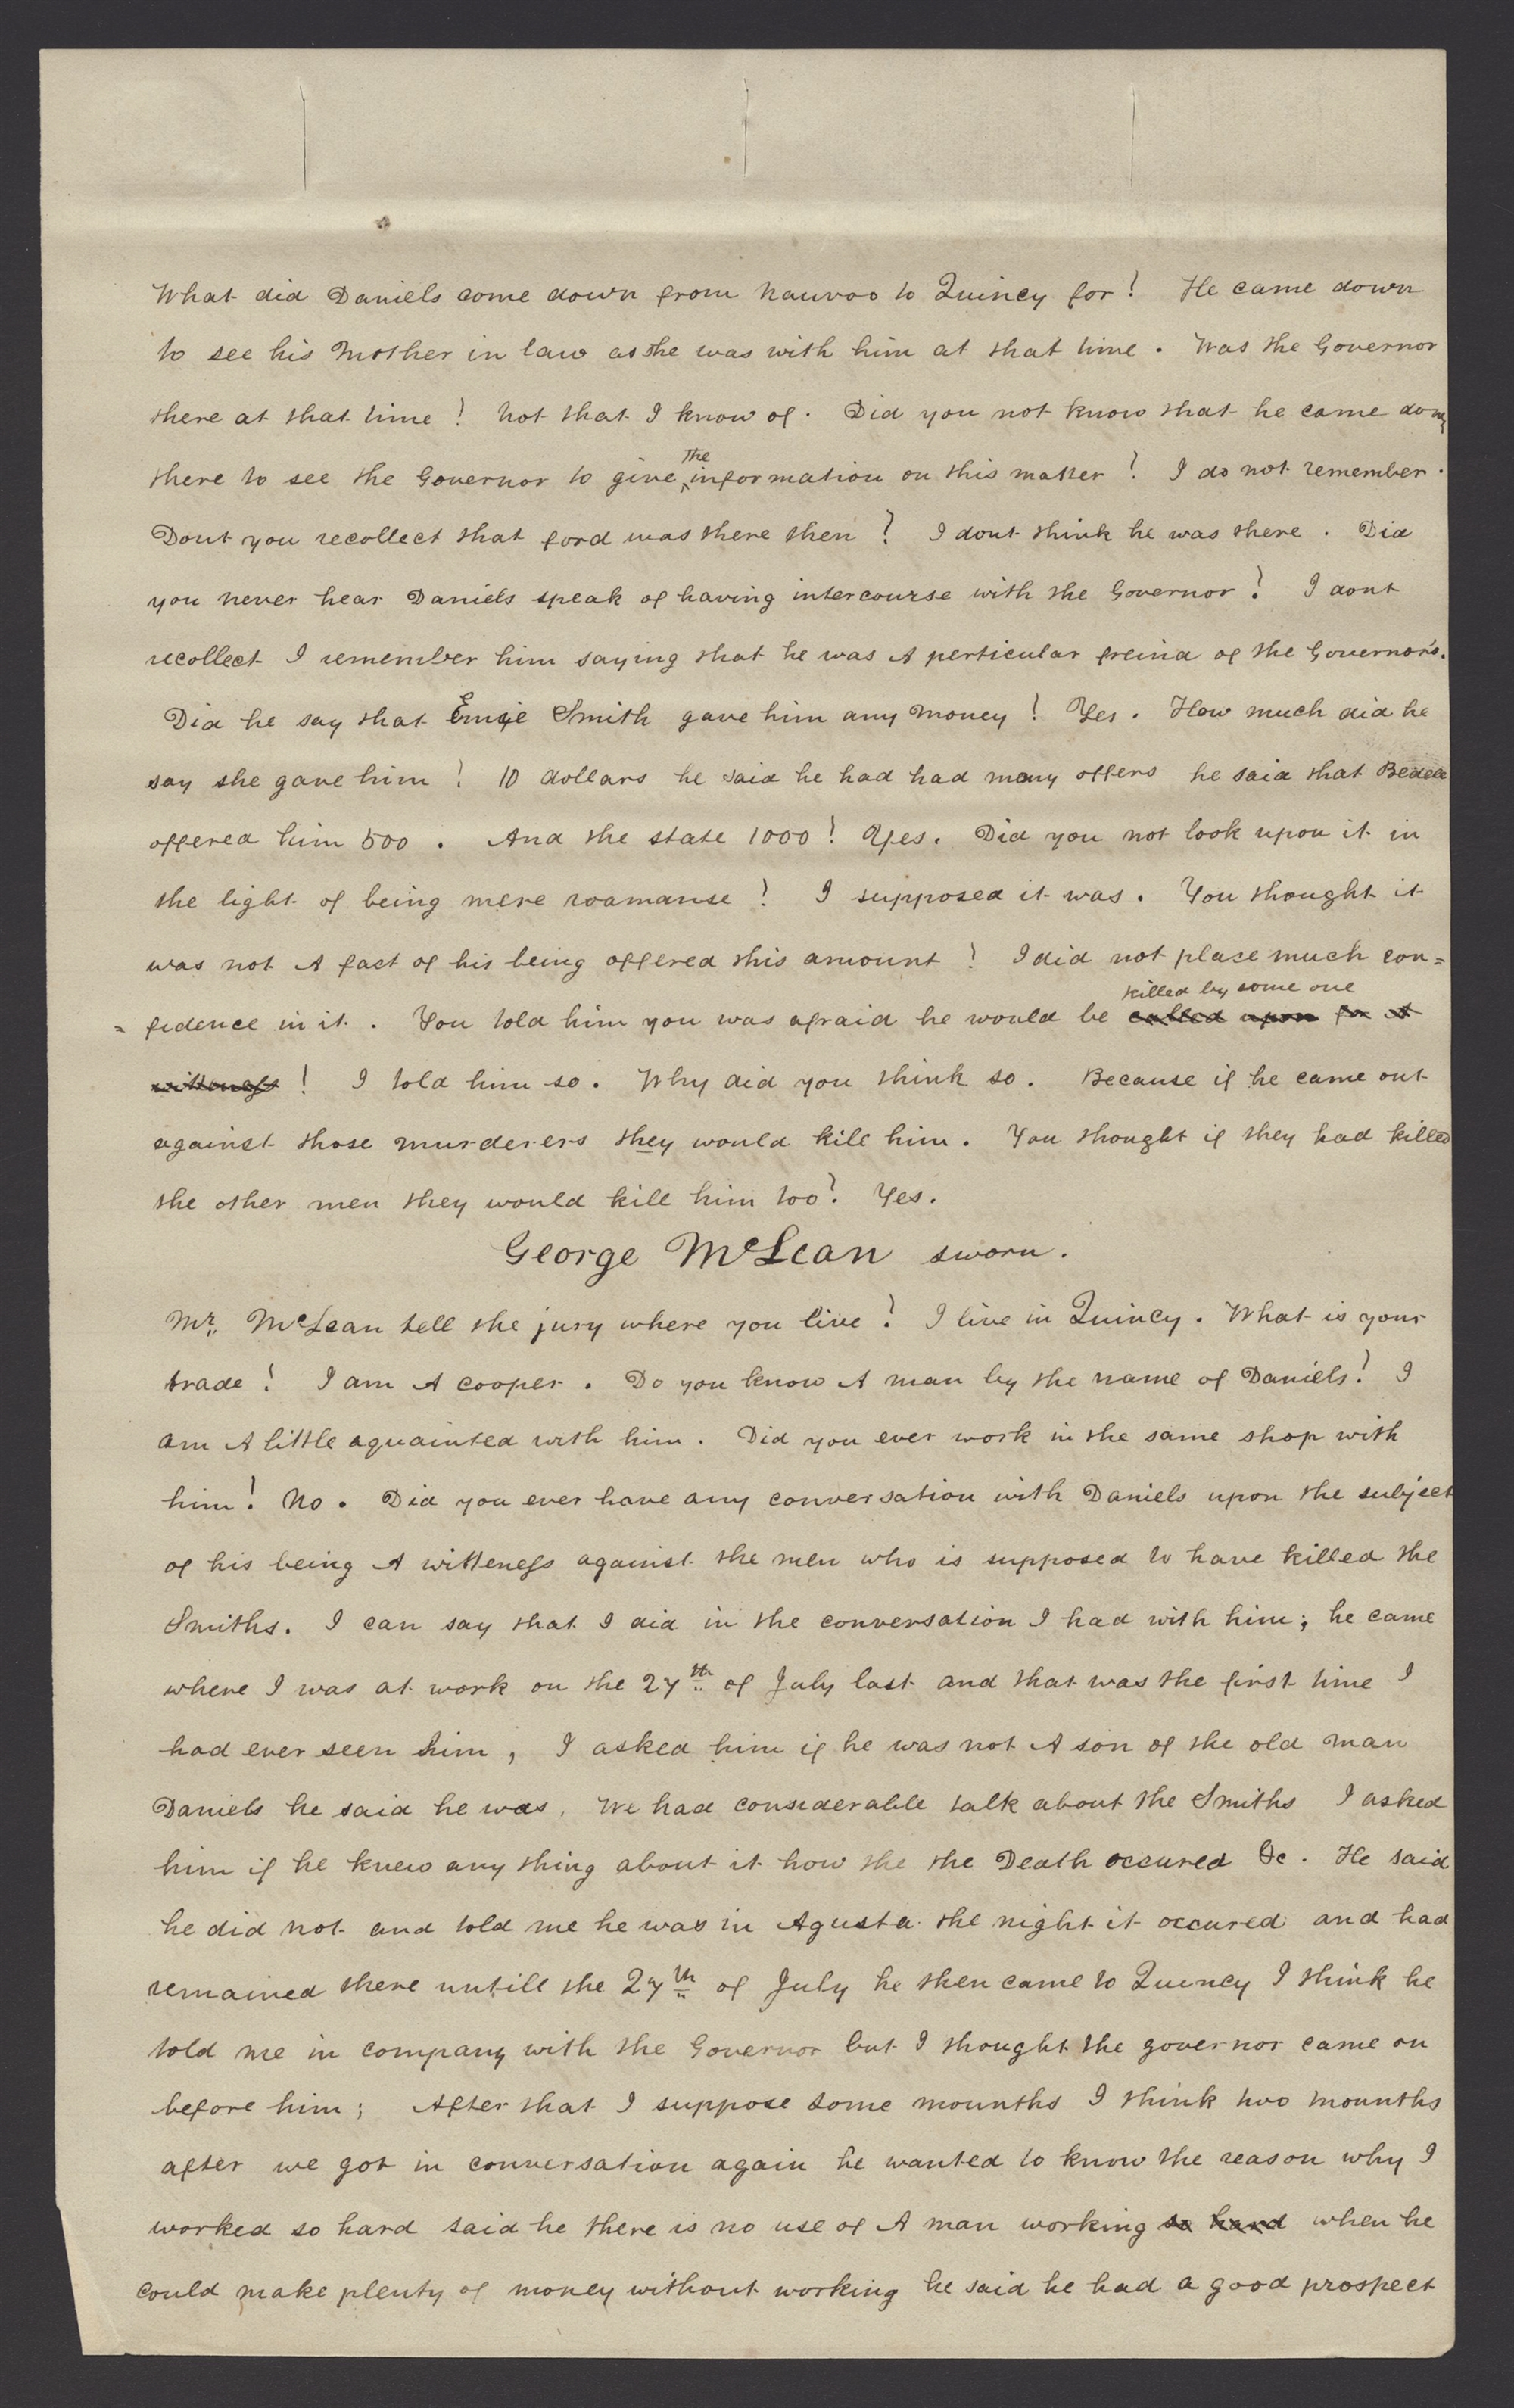 What did Daniels come down from Nauvoo to Quincy for? He came down
to see his Mother in law as she was with him at that time. Was the Governor
there at that time? Not that I know of. Did you not know that he came down
there to see the Governor to give the information on this matter? I do not remember.
Dont you recollect that ford was there then? I dont think he was there. Did
you never hear Daniels speak of having intercourse with the Governor? I dont
recollect I remember him saying that he was A perticular freind of the Governors.
Did he say that Smith gave him any money? Yes. How much did he
say she gave him? 10 dollars he said he had had many offers he said that Bedell
offered him 500. And the state 1000? Yes. Did you not look upon it in
the light of being mere roamanse? I supposed it was. You thought it
was not A fact of his being offered this amount? I did not place much con=
=fidence in it. You told him you was afraid he would be called upon for A killed by some one
witteness? I told him so. Why did you think so. Because if he came out
against those murderers they would kill him. You thought if they had killed
the other men they would kill him too? Yes.
George McLean sworn.
Mr. McLean tell the jury where you live? I live in Quincy. What is your
trade? I am A cooper. Do you know A man by the name of Daniels? I
am A little aquainted with him. Did you ever work in the same shop with
him? No. Did you ever have any conversation with Daniels upon the subject
of his being A witteness against the men who is supposed to have killed the
Smiths. I can say that I did in the conversation I had with him; he came
where I was at work on the 27th of July last and that was the first time I
had ever seen him, I asked him if he was not A son of the old man
Daniels he said he was. We had considerable talk about the Smiths I asked
him if he knew any thing about it how the the Death occured &c. He said
he did not and told me he was in Agusta the night it occured and had
remained there untill the 27th of July he then came to Quincy I think he
told me in company with the Governor but I thought the governor came on
before him; After that I suppose some mounths I think two mounths
after we got in conversation again he wanted to know the reason why I
worked so hard said he there is no use of A man working so hard when he
could make plenty of money without working he said he had a good prospect